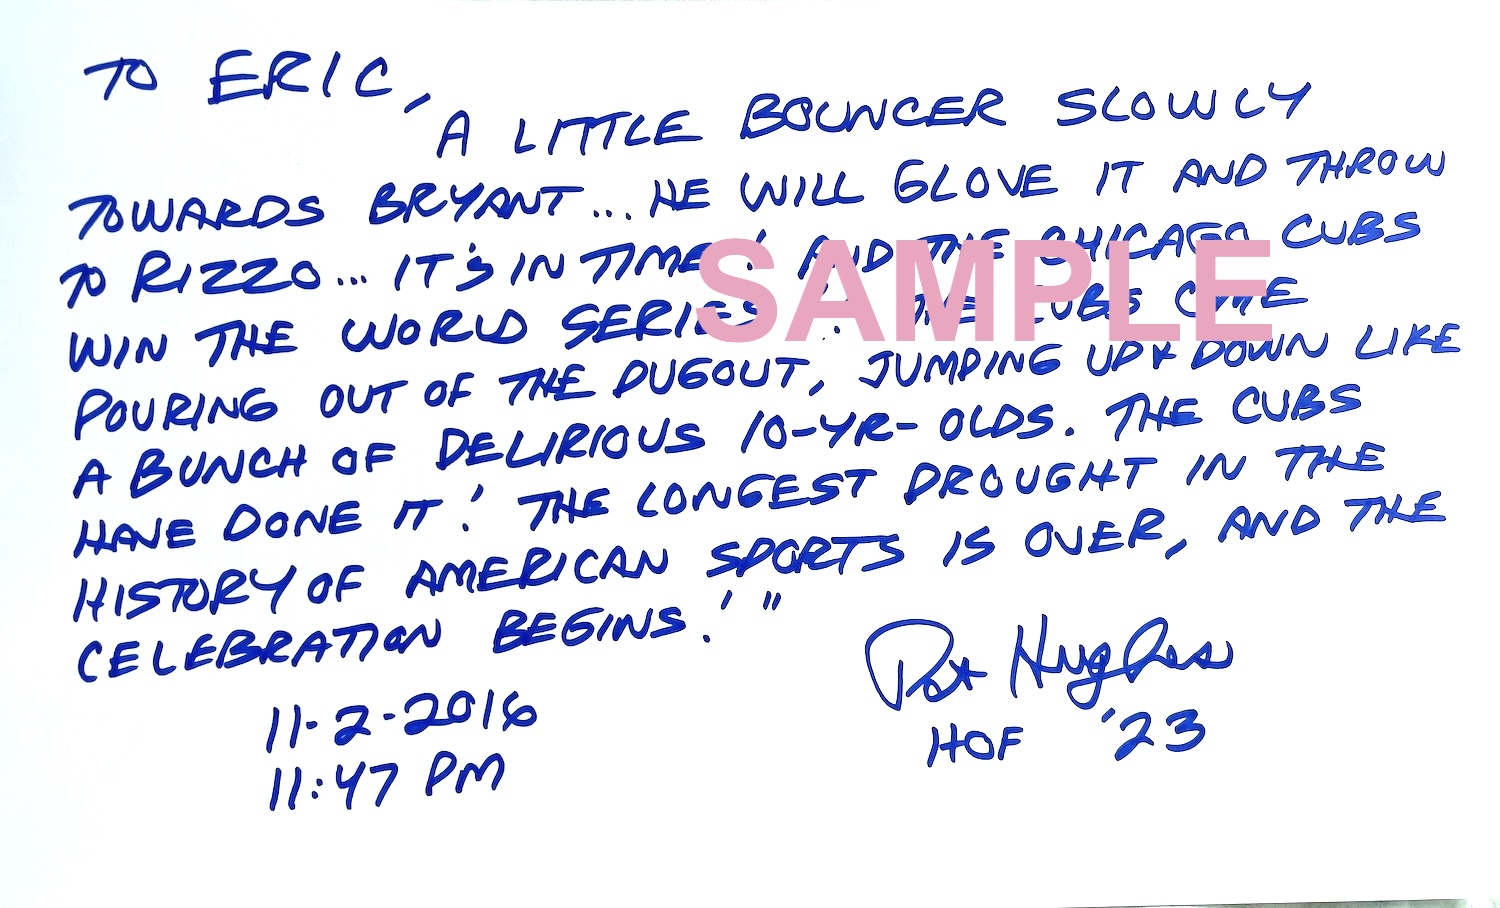 TO ERIC,
A LITTLE BOUNCER SLOWLY
TOWARDS BRYANT... HE WILL GLOVE IT AND THROW
TO RIZZO... IT'S IN TIME! AND THE CHICAGO CUBS
WIN THE WORLD SERIES! THE CUBS COME
POURING OUT OF THE DUGOUT, JUMPING UP & DOWN LIKE
A BUNCH OF DELIRIOUS 10-YR-OLDS. THE CUBS
HAVE DONE IT! THE LONGEST DROUGHT IN THE
HISTORY OF AMERICAN SPORTS IS OVER, AND THE
CELEBRATION BEGINS!"
Pat Hughes
HOF '23
11-2-2016
11:47 PM
SAMPLE